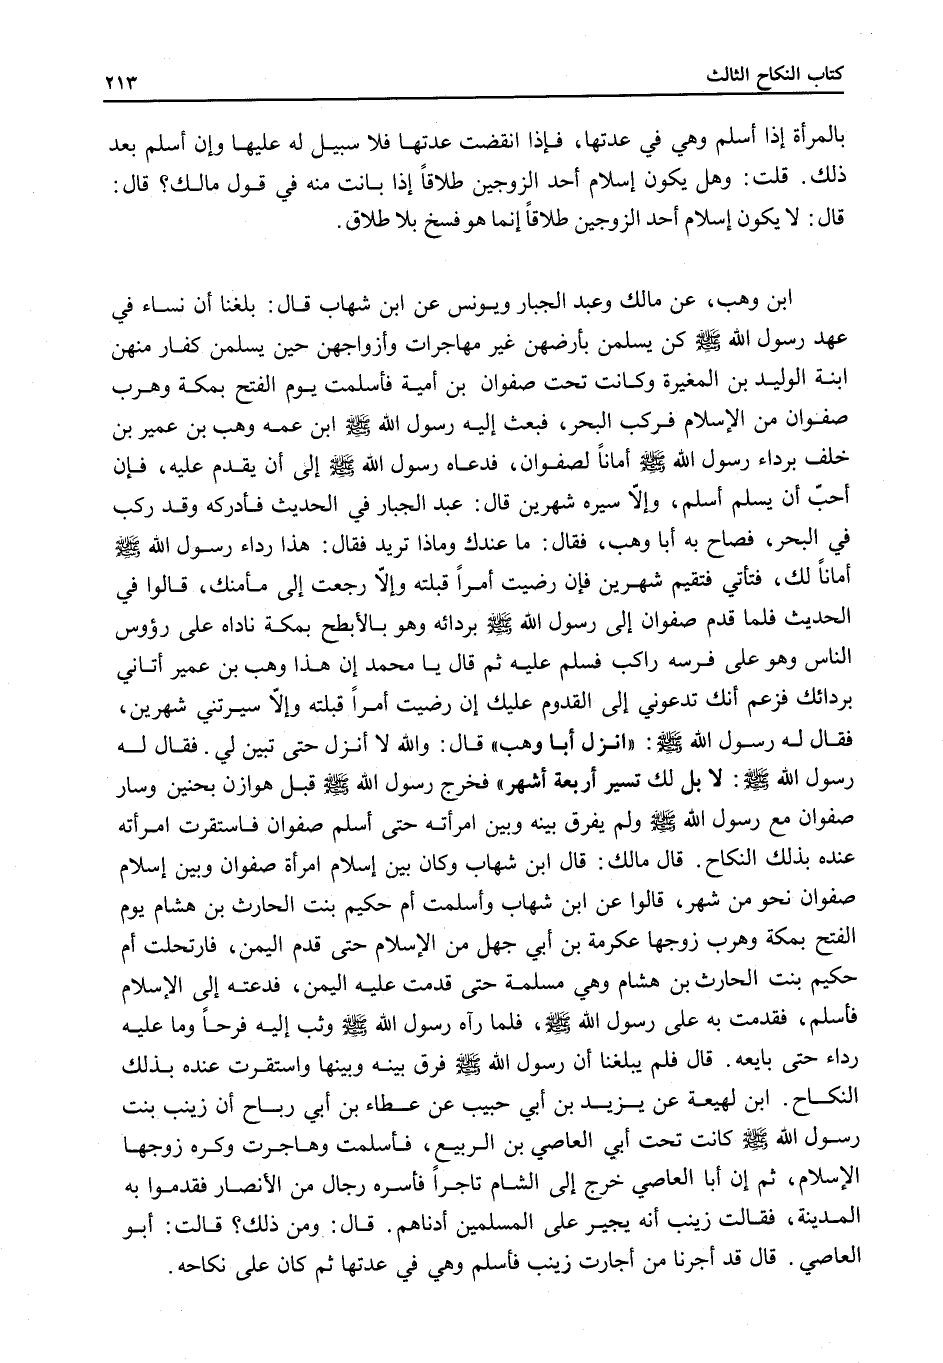 كتاب النكاح الثالث
٢١٣
بالمرأة إذا أسلم وهي في عدتها، فإذا انقضت عدتها فلا سبيل له عليها وإن أسلم بعد
ذلك. قلت: وهل يكون إسلام أحد الزوجين طلاقاً إذا بانت منه في قول مالك؟ قال:
قال: لا يكون إسلام أحد الزوجين طلاقاً إنما هو فسخ بلا طلاق.
ابن وهب، عن مالك وعبد الجبار ويونس عن ابن شهاب قال: بلغنا أن نساء في
عهد رسول الله ﷺ كن يسلمن بأرضهن غير مهاجرات وأزواجهن حين يسلمن كفار منهن
ابنة الوليد بن المغيرة وكانت تحت صفوان بن أمية فأسلمت يوم الفتح بمكة وهرب
صفوان من الإسلام فركب البحر، فبعث إليه رسول الله ﷺ ابن عمه وهب بن عمير بن
خلف برداء رسول الله ﷺ أماناً لصفوان، فدعاه رسول الله ﷺ إلى أن يقدم عليه، فإن
أحبّ أن يسلم أسلم، وإلاّ سيره شهرين قال: عبد الجبار في الحديث فأدركه وقد ركب
في البحر، فصاح به أبا وهب، فقال: ما عندك وماذا تريد فقال: هذا رداء رسول الله ﷺ
أماناً لك، فتأتي فتقيم شهرين فإن رضيت أمراً قبلته وإلاّ رجعت إلى مأمنك، قالوا في
الحديث فلما قدم صفوان إلى رسول الله ﷺ بردائه وهو بالأبطح بمكة ناداه على رؤوس
الناس وهو على فرسه راكب فسلم عليه ثم قال يا محمد إن هذا وهب بن عمير أتاني
بردائك فزعم أنك تدعوني إلى القدوم عليك إن رضيت أمراً قبلته وإلاّ سيرتني شهرين،
فقال له رسول الله ﷺ: «انزل أبا وهب» قال: والله لا أنزل حتى تبين لي. فقال له
رسول الله ﷺ: لا بل لك تسير أربعة أشهر» فخرج رسول الله ﷺ قبل هوازن بحنين وسار
صفوان مع رسول الله ﷺ ولم يفرق بينه وبين امرأته حتى أسلم صفوان فاستقرت امرأته
عنده بذلك النكاح. قال مالك: قال ابن شهاب وكان بين إسلام امرأة صفوان وبين إسلام
صفوان نحو من شهر، قالوا عن ابن شهاب وأسلمت أم حكيم بنت الحارث بن هشام يوم
الفتح بمكة وهرب زوجها عكرمة بن أبي جهل من الإسلام حتى قدم اليمن، فارتحلت أم
حكيم بنت الحارث بن هشام وهي مسلمة حتى قدمت عليه اليمن، فدعته إلى الإسلام
فأسلم، فقدمت به على رسول الله ﷺ، فلما رآه رسول الله ﷺ وثب إليه فرحاً وما عليه
رداء حتى بايعه. قال فلم يبلغنا أن رسول الله ﷺ فرق بينه وبينها واستقرت عنده بذلك
النكاح. ابن لهيعة عن يزيد بن أبي حبيب عن عطاء بن أبي رباح أن زينب بنت
رسول الله ﷺ كانت تحت أبي العاصي بن الربيع، فأسلمت وهاجرت وكره زوجها
الإسلام، ثم إن أبا العاصي خرج إلى الشام تاجراً فأسره رجال من الأنصار فقدموا به
المدينة، فقالت زينب أنه يجير على المسلمين أدناهم. قال: ومن ذلك؟ قالت: أبو
العاصي. قال قد أجرنا من أجارت زينب فأسلم وهي في عدتها ثم كان على نكاحه.